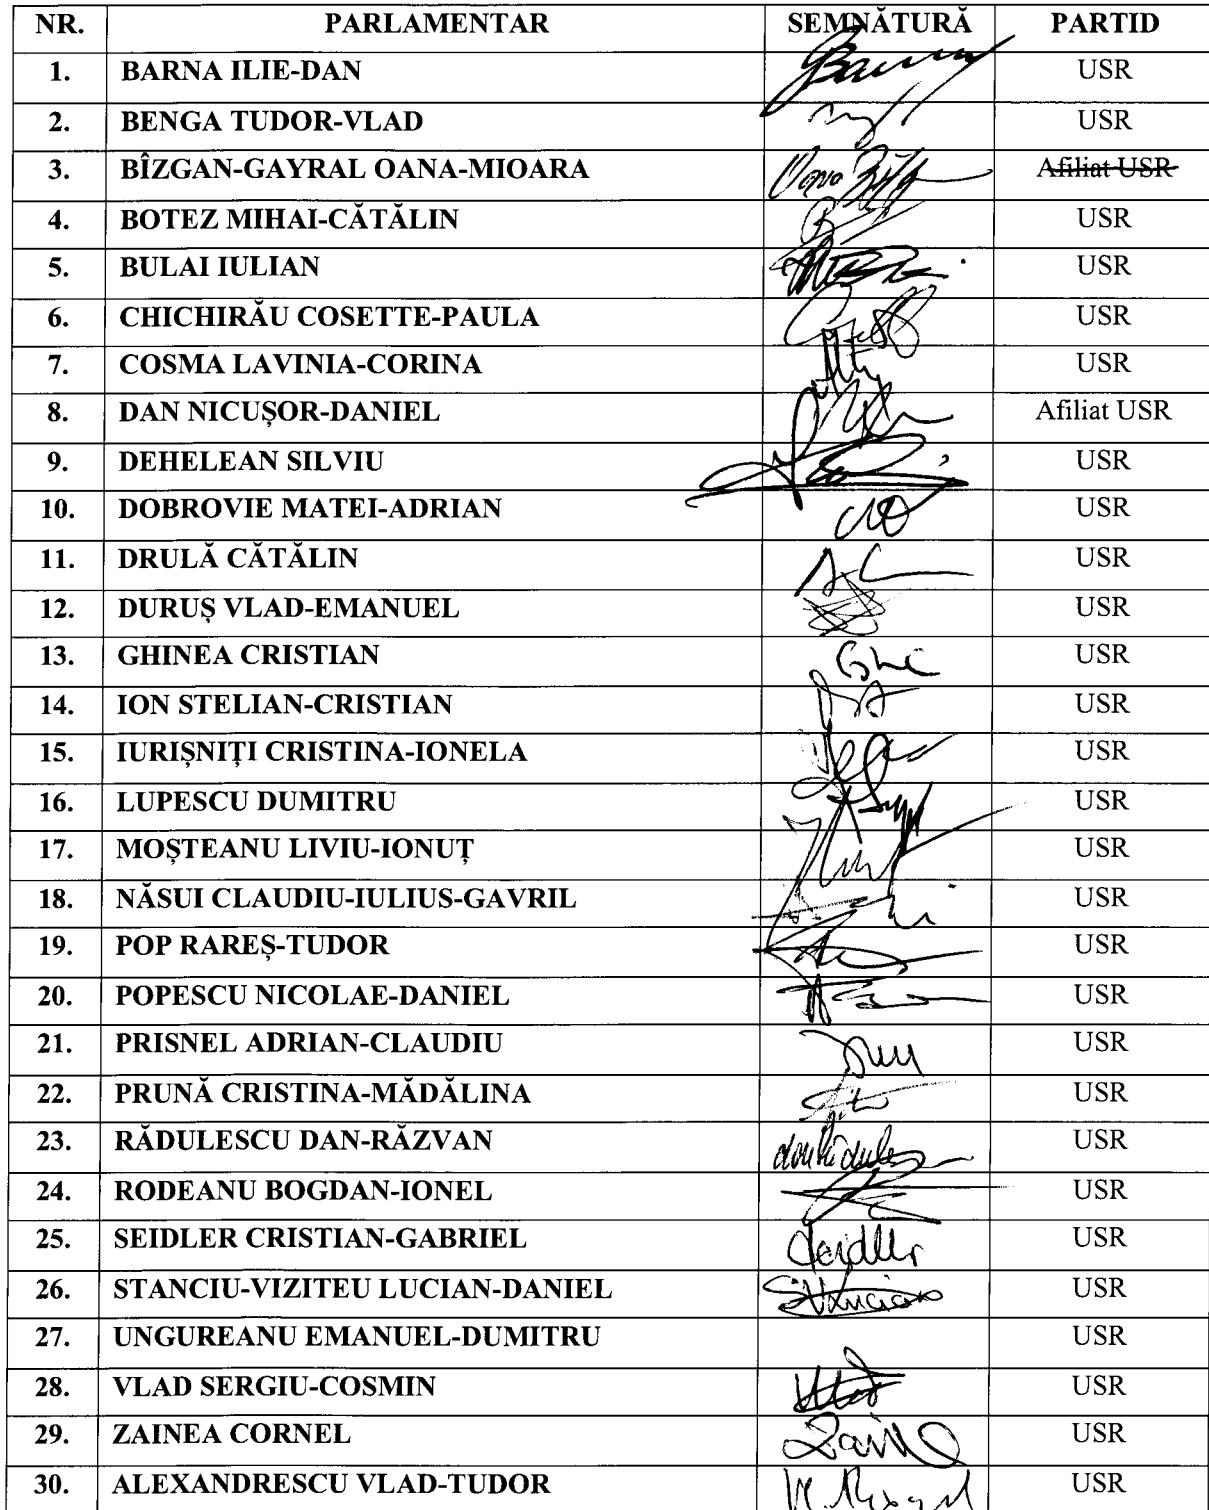 NR. PARLAMENTAR SEMNĂTURĂ PARTID
1. BARNA ILIE-DAN USR
2. BENGA TUDOR-VLAD USR
3. BÎZGAN-GAYRAL OANA-MIOARA Afiliat USR
4. BOTEZ MIHAI-CĂTĂLIN USR
5. BULAI IULIAN USR
6. CHICHIRĂU COSETTE-PAULA USR
7. COSMA LAVINIA-CORINA USR
8. DAN NICUȘOR-DANIEL Afiliat USR
9. DEHELEAN SILVIU USR
10. DOBROVIE MATEI-ADRIAN USR
11. DRULĂ CĂTĂLIN USR
12. DURUȘ VLAD-EMANUEL USR
13. GHINEA CRISTIAN USR
14. ION STELIAN-CRISTIAN USR
15. IURIȘNIȚI CRISTINA-IONELA USR
16. LUPESCU DUMITRU USR
17. MOȘTEANU LIVIU-IONUȚ USR
18. NĂSUI CLAUDIU-IULIUS-GAVRIL USR
19. POP RAREȘ-TUDOR USR
20. POPESCU NICOLAE-DANIEL USR
21. PRISNEL ADRIAN-CLAUDIU USR
22. PRUNĂ CRISTINA-MĂDĂLINA USR
23. RĂDULESCU DAN-RĂZVAN USR
24. RODEANU BOGDAN-IONEL USR
25. SEIDLER CRISTIAN-GABRIEL Seidler USR
26. STANCIU-VIZITEU LUCIAN-DANIEL USR
27. UNGUREANU EMANUEL-DUMITRU USR
28. VLAD SERGIU-COSMIN USR
29. ZAINEA CORNEL USR
30. ALEXANDRESCU VLAD-TUDOR USR